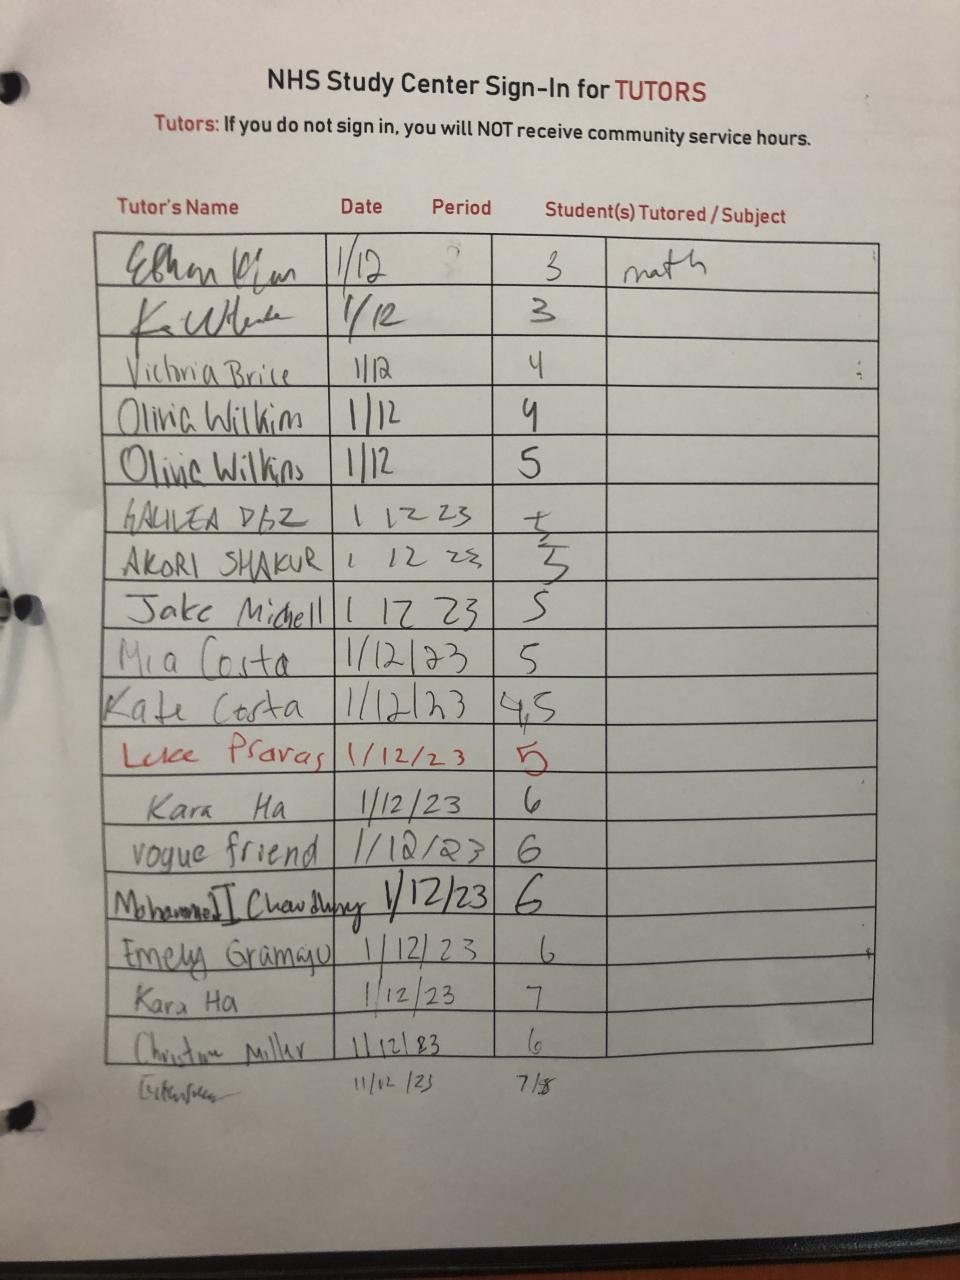 NHS Study Center Sign-In for TUTORS
Tutors: If you do not sign in, you will NOT receive community service hours.
Tutor's Name Date Period Student(s) Tutored / Subject
Ethan 1/12 3 math
1/12 3
Victoria Brice 1/12 4
Olivia Wilkins 1/12 4
Olivia Wilkins 1/12 5
GALILEA 1 12 23
AKORI SHAKUR 1 12 23 5
Jake Michell 1 12 23 5
Mia Costa 1/12/23 5
Kate Costa 1/12/23 4,5
Luke Psaras 1/12/23 5
Kara Ha 1/12/23 6
vogue friend 1/12/23 6
Mohammed I Chowdhury 1/12/23 6
Emely Gramajo 1/12/23 6
Kara Ha 1/12/23 7
Christine Miller 1/12/23 6
11/12/23 7/8